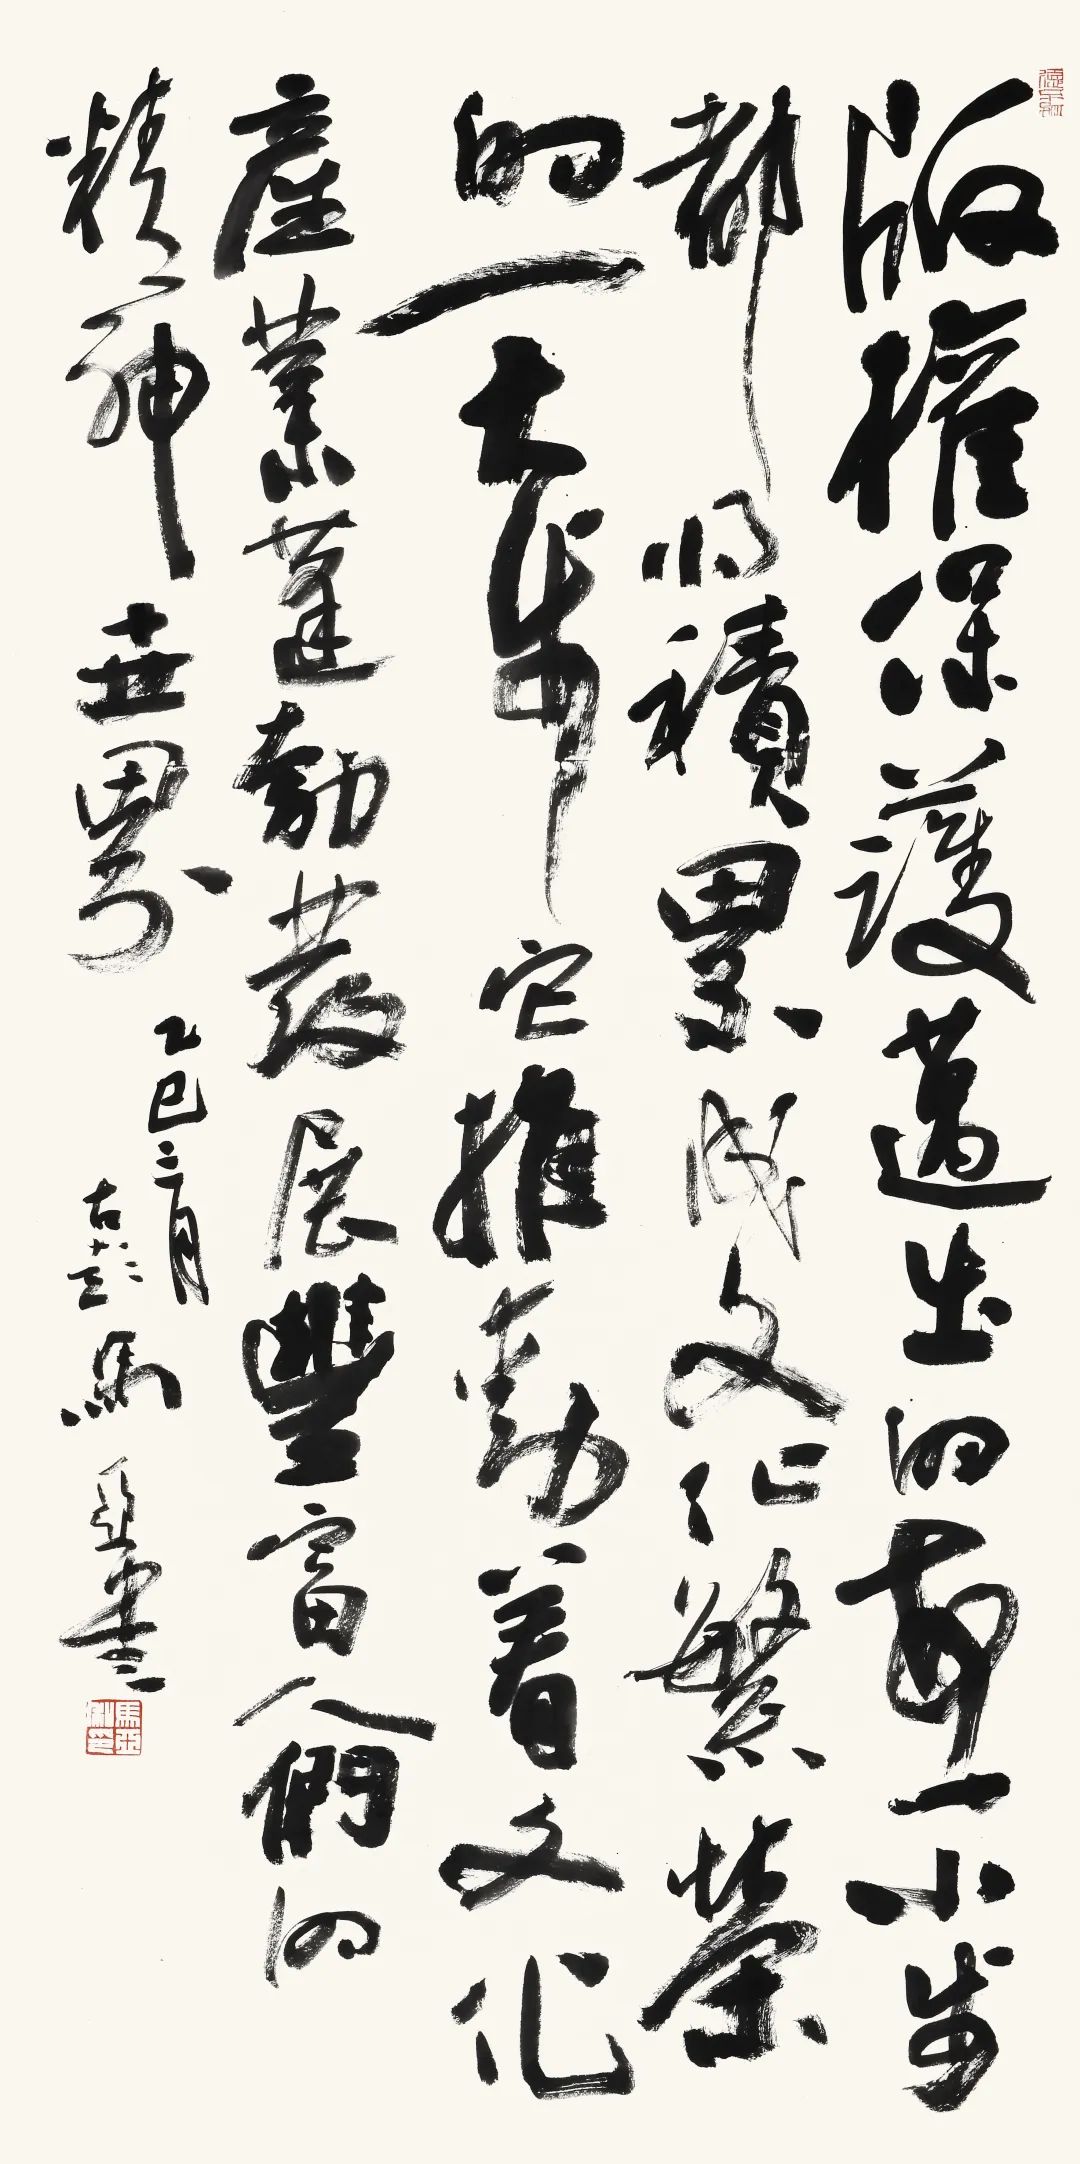 版權保護邁出的每一小步
都将積累成文化繁榮
的一大步它推動着文化
產業蓬勃發展豐富人們的
精神世界
乙巳三月
古彭馬亞書